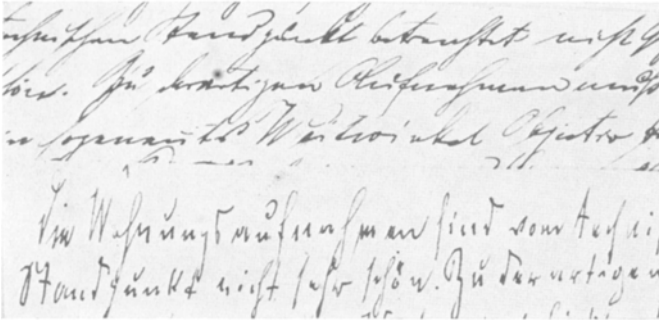 technischen Standpunkt betrachtet nicht
schön. Zu derartigen Aufnahmen muß
sogenannts Weitwinkel Objectiv
Die Wohnungsaufnahmen sind vom techni
Standpunkt nicht sehr schön. Zu derartigen